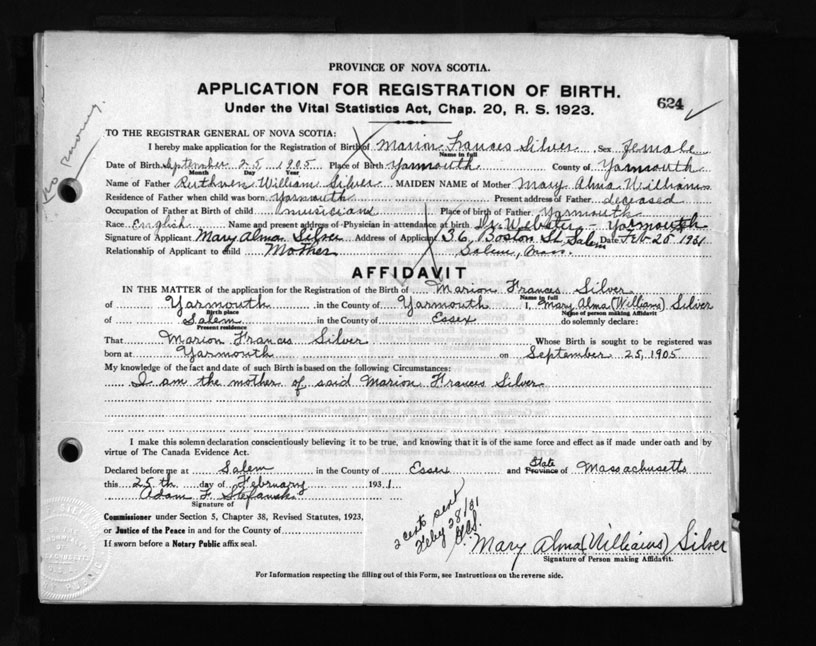 PROVINCE OF NOVA SCOTIA.
APPLICATION FOR REGISTRATION OF BIRTH.
Under the Vital Statistics Act, Chap. 20, R. S. 1923.
624
No money
TO THE REGISTRAR GENERAL OF NOVA SCOTIA:
I hereby make application for the Registration of Birth of Marion Frances Silver Sex female
Name in full
Date of Birth September 25 1905 Place of Birth Yarmouth County of Yarmouth
Month Day Year
Name of Father Ruthven William Silver MAIDEN NAME of Mother Mary Alma Williams
Residence of Father when child was born Yarmouth Present address of Father deceased
Occupation of Father at Birth of child musician Place of birth of Father Yarmouth
Race English Name and present address of Physician in attendance at birth Dr. Webster - Yarmouth
Signature of Applicant Mary Alma Silver Address of Applicant 36 Boston St. Salem Date Feb 25 1931
Relationship of Applicant to child Mother Salem, Mass.
AFFIDAVIT
IN THE MATTER of the application for the Registration of the Birth of Marion Frances Silver
Name in full
of Yarmouth in the County of Yarmouth I, Mary Alma (Williams) Silver
Birth place Name of person making Affidavit
of Salem in the County of Essex do solemnly declare:
Present residence
That Marion Frances Silver Whose Birth is sought to be registered was
born at Yarmouth on September 25, 1905
My knowledge of the fact and date of such Birth is based on the following Circumstances:
I am the mother of said Marion Frances Silver
I make this solemn declaration conscientiously believing it to be true, and knowing that it is of the same force and effect as if made under oath and by
virtue of The Canada Evidence Act.
Declared before me at Salem in the County of Essex and State Province of Massachusetts
this 25th day of February 1931
Adam F. Stefanski
Signature of
Commissioner under Section 5, Chapter 38, Revised Statutes, 1923,
or Justice of the Peace in and for the County of
If sworn before a Notary Public affix seal.
2 cert sent
Feby 28/31
Mary Alma (Williams) Silver
Signature of Person making Affidavit.
For Information respecting the filling out of this Form, see Instructions on the reverse side.